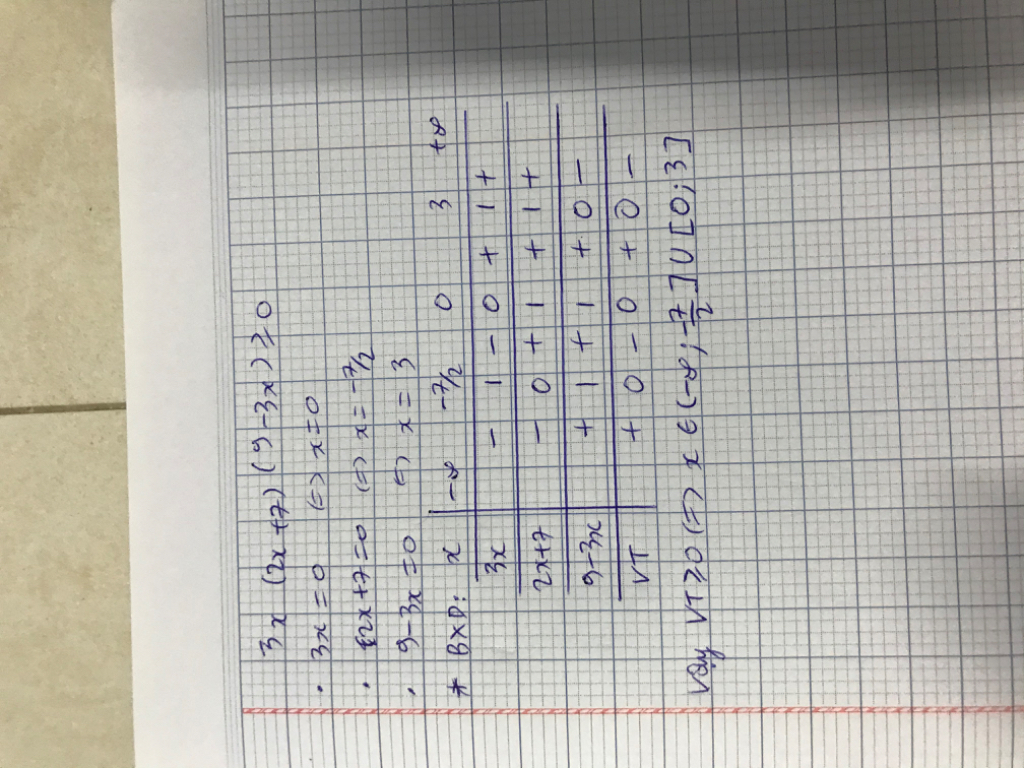 3x (2x+7) (9-3x) ≥ 0
. 3x = 0 (=) x = 0
. 2x+7=0 (=) x = -7/2
. 9-3x = 0 (=) x = 3
* BXD: x | -∞ -7/2 0 3 +∞
3x | - | - 0 + | +
2x+7 | - 0 + | + | +
9-3x | + | + | + 0 -
VT | + 0 - 0 + 0 -
Vậy VT ≥ 0 (=) x ∈ (-∞; -7/2] ∪ [0; 3]